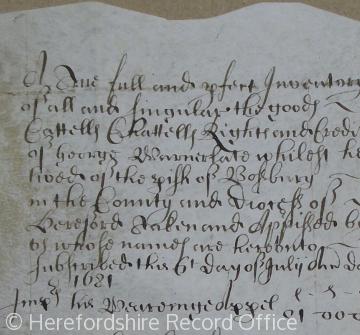 A True full and pfect Inventory
of all and singular the goods
Cattells Chattells Rights and Credi
of George Warner late whilest he
lived of the pish of Bosbury
in the County and Diocess of
Hereford Taken and Apprised b
whose names are hereunto
subscribed this 6t day of July Ano do
1681
Imps his Weareinge Appel
© Herefordshire Record Office